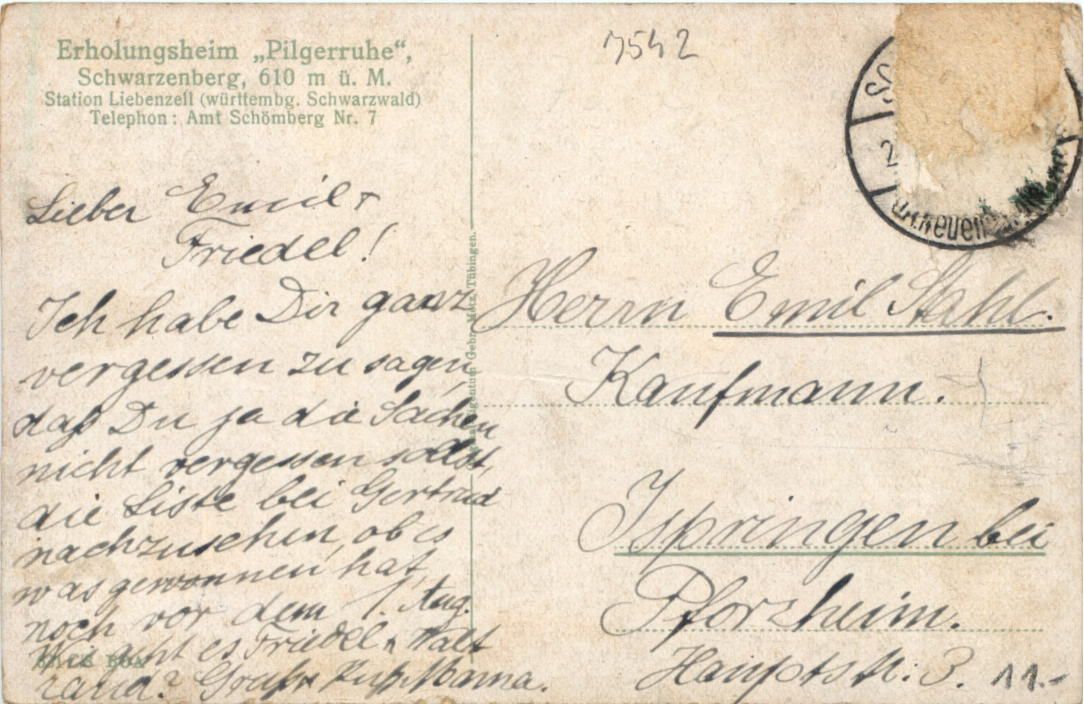 Erholungsheim „Pilgerruhe“,
Schwarzenberg, 610 m ü. M.
Station Liebenzell (württembg. Schwarzwald)
Telephon: Amt Schömberg Nr. 7
7542
Lieber Emil +
Friedel!
Ich habe Dir ganz
vergessen zu sagen
daß Du ja die Sachen
nicht vergessen sollst,
die Liste bei Gertrud
nachzusehen, ob es
was gewonnen hat,
noch vor dem 1. Aug.
Wie geht es Friedel u. Walt
raud? Gruß Kuß Mama.
Gebr. Metz, Tübingen.
Herrn Emil Stahl.
Kaufmann.
Ispringen bei
Pforzheim.
Hauptstr: 3.
11.-